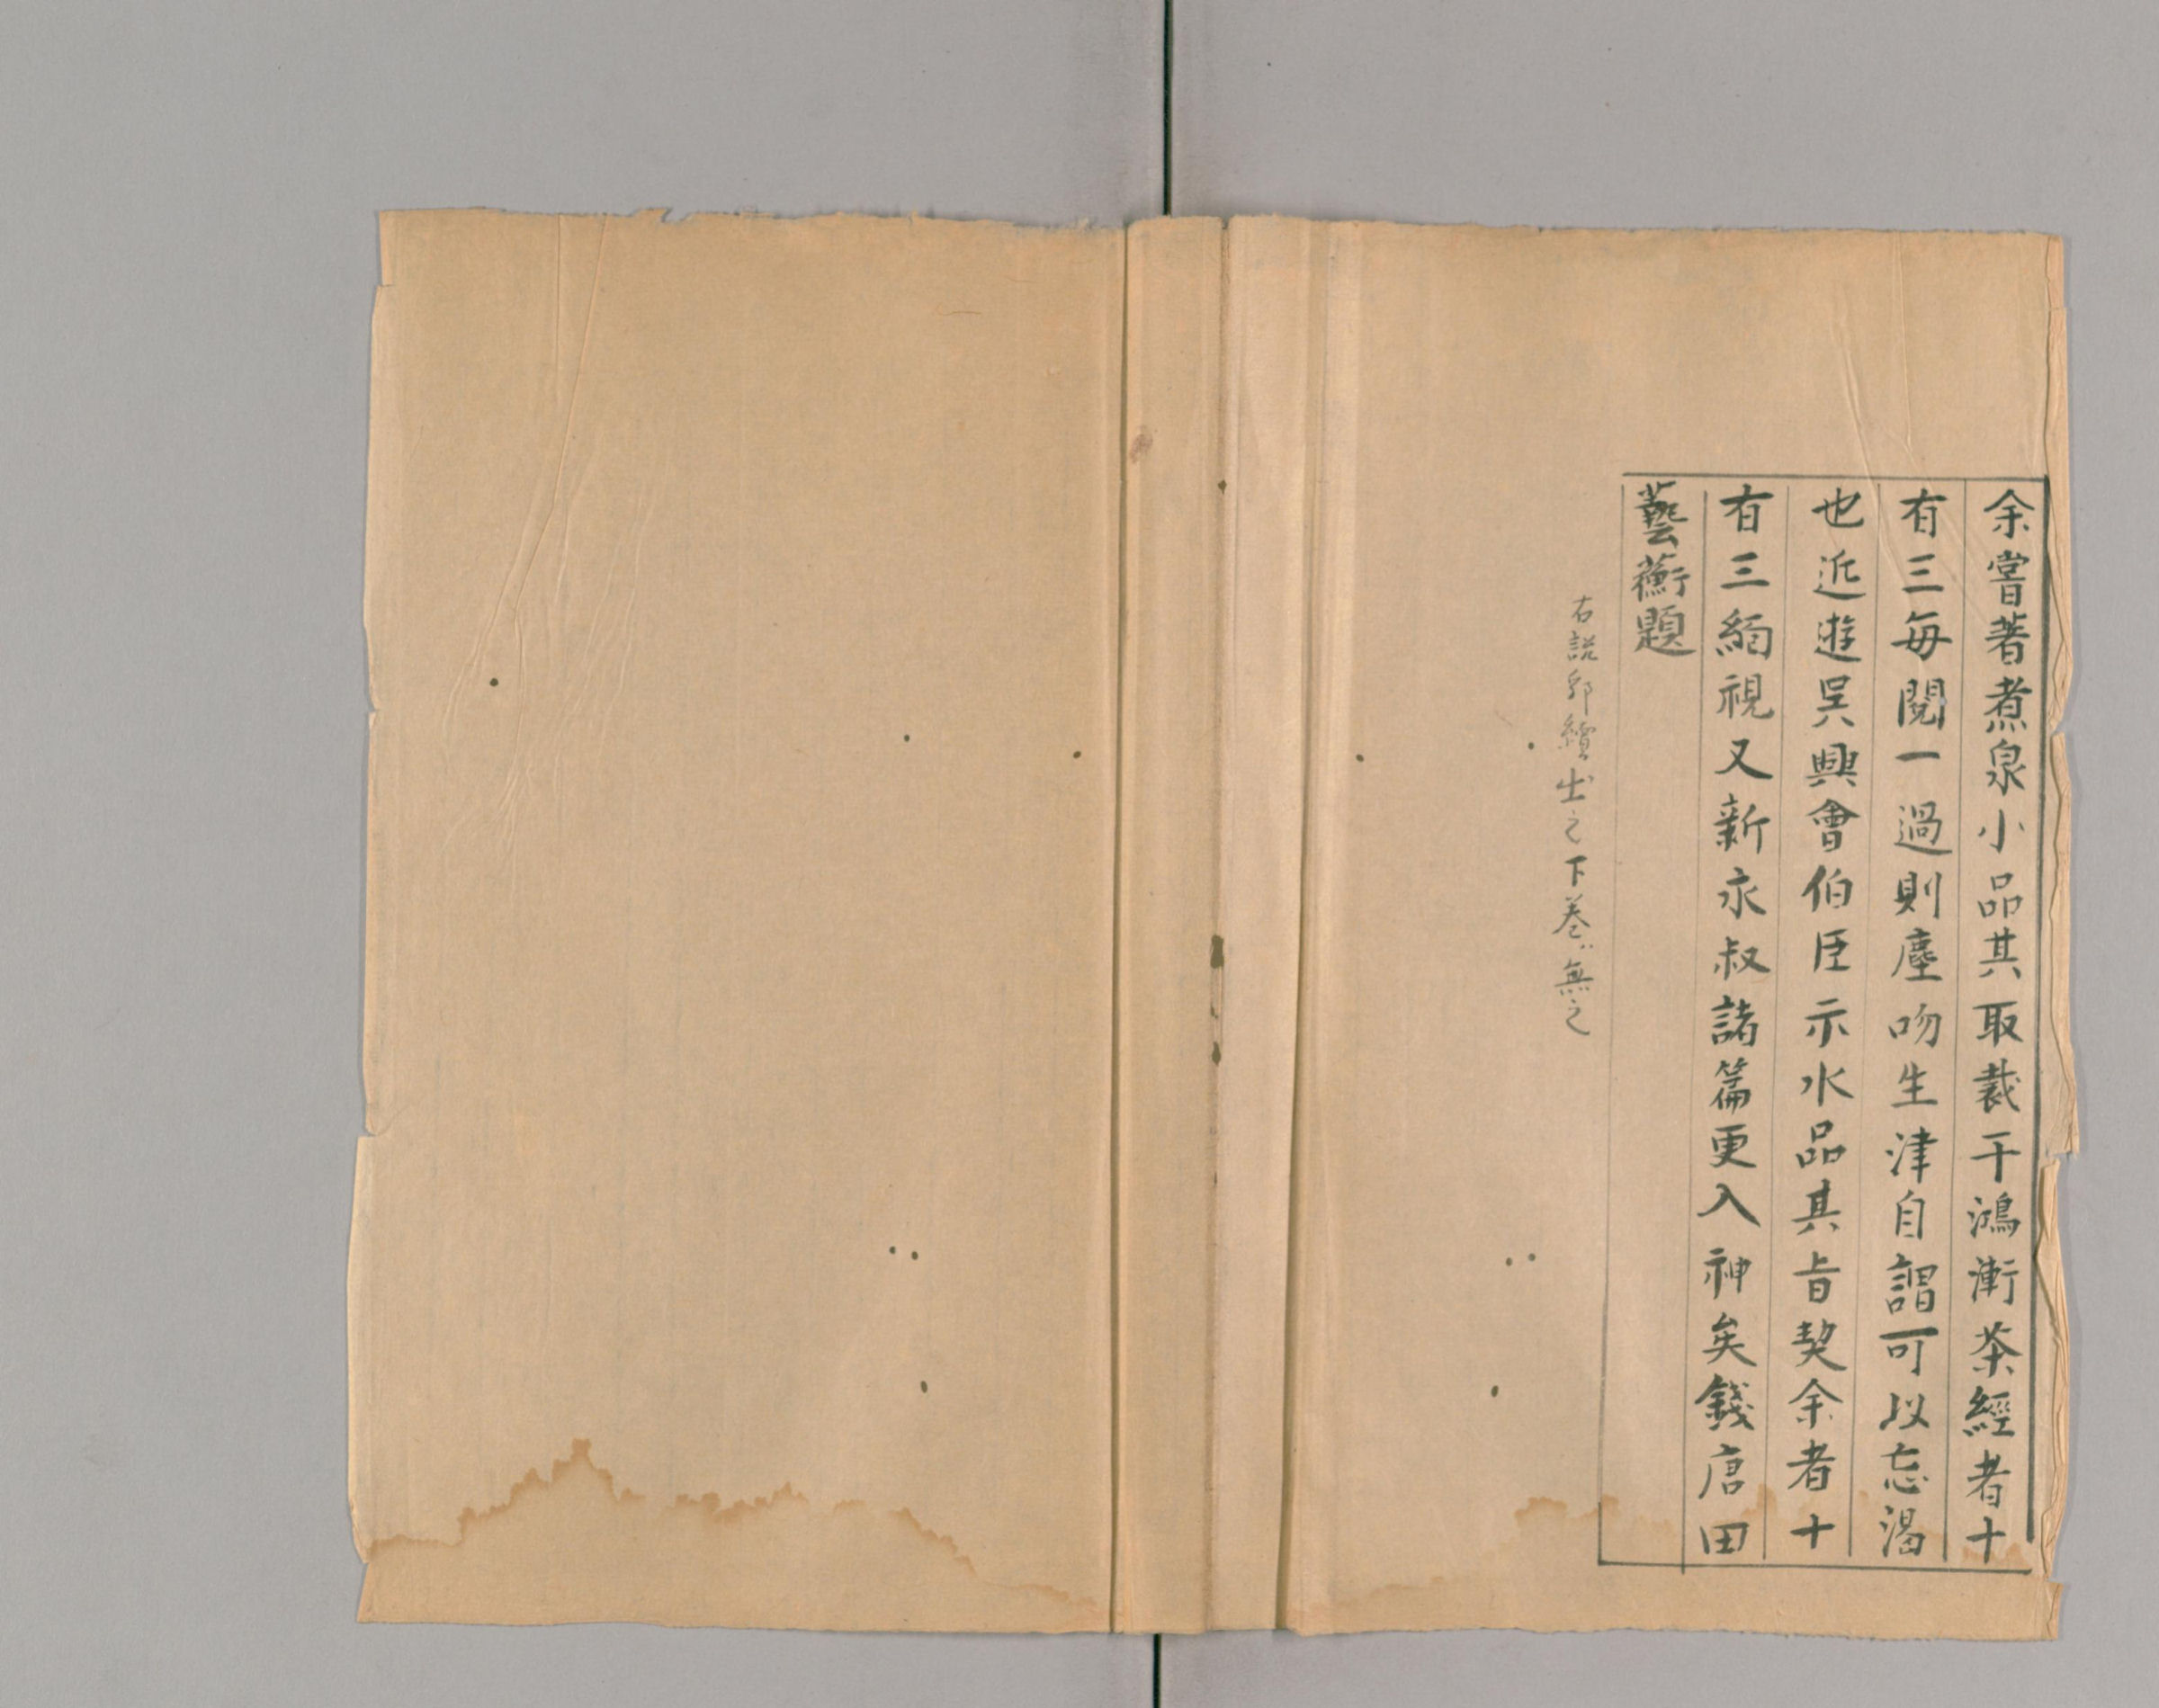 余嘗著煮泉小品其取裁于鴻漸茶經者十
有三每閱一過則塵吻生津自謂可以忘渴
也近遊吳興會伯臣示水品其旨契余者十
有三緬視又新永叔諸篇更入神矣錢唐田
藝蘅題
右説郛續出之下巻〻無之